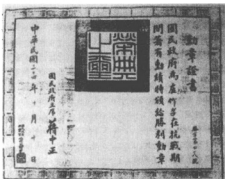 勳章證書
國民政府為盧作孚在抗戰期
間著有勳績特頒給勝利勳章
榮典之璽
國民政府主席 蔣中正
中華民國三十四年十月十日